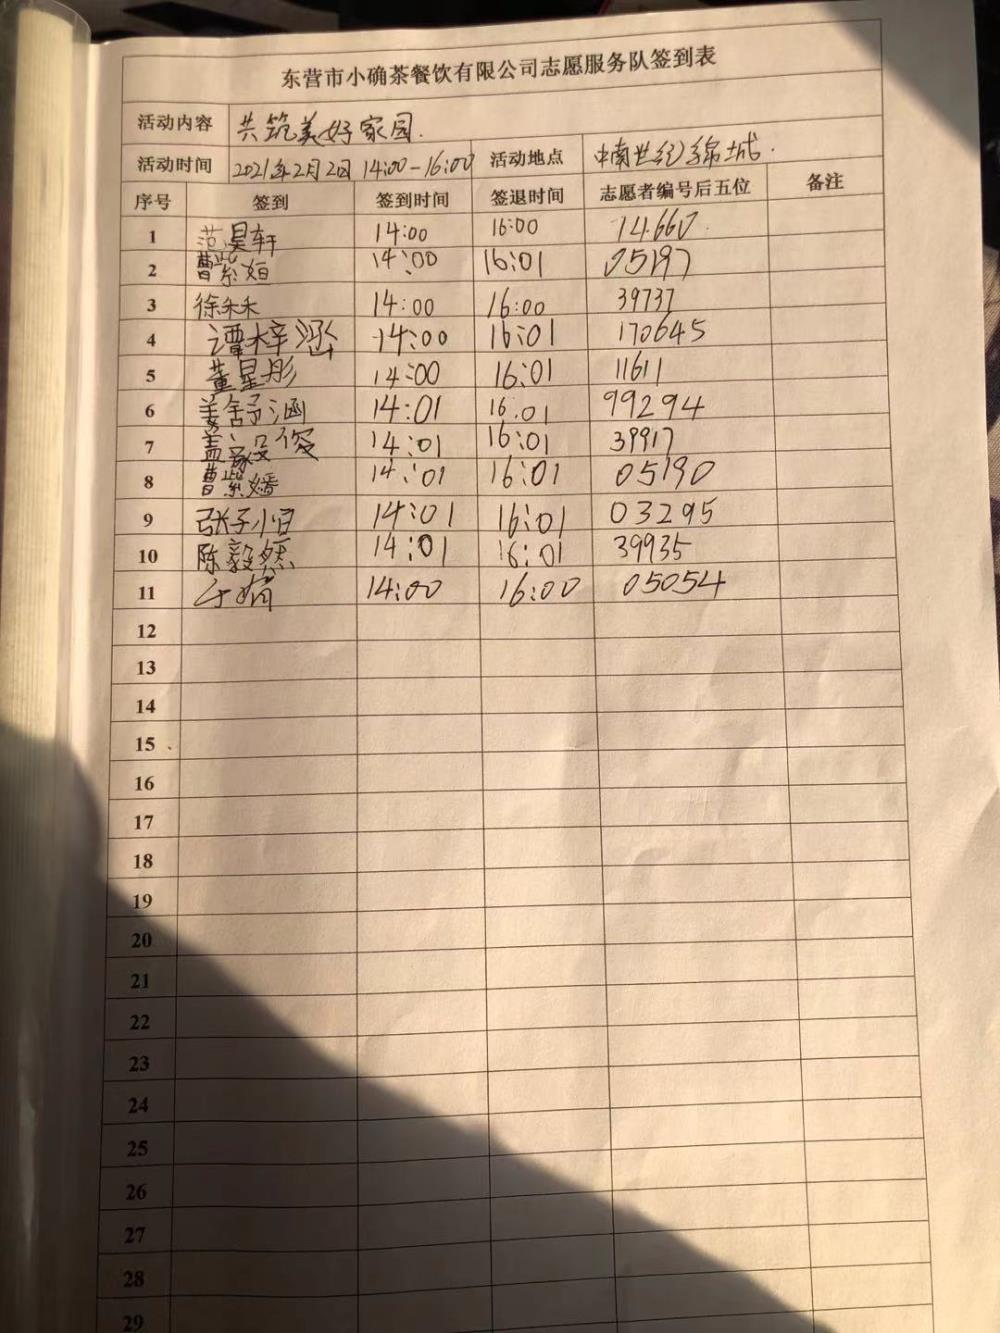 东营市小确茶餐饮有限公司志愿服务队签到表
活动内容 共筑美好家园.
活动时间 2021年2月2日 14:00-16:00 活动地点 中南世纪锦城.
序号 签到 签到时间 签退时间 志愿者编号后五位 备注
1 范昊轩 14:00 16:00 14660
2 曹紫姮 14:00 16:01 05197
3 徐禾禾 14:00 16:00 39737
4 谭梓涵 14:00 16:01 170645
5 董星彤 14:00 16:01 11611
6 姜舒涵 14:01 16:01 99294
7 盖 俊 14:01 16:01 39917
8 曹紫嫣 14:01 16:01 05190
9 张子 14:01 16:01 03295
10 陈毅然 14:01 16:01 39935
11 14:00 16:00 05054
12
13
14
15
16
17
18
19
20
21
22
23
24
25
26
27
28
29